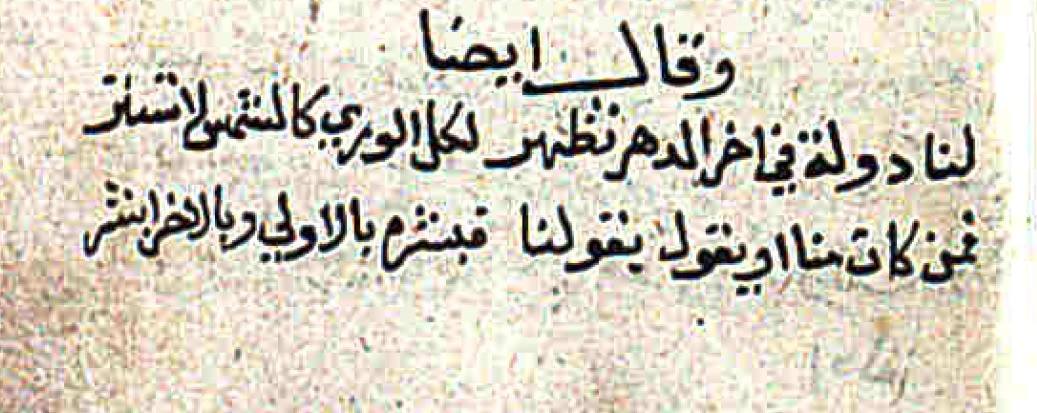 وقال ايضا
لنا دولة في اخر الدهر تظهر لكل الوري كالشمس لا تستتر
فمن كان منا او يقول بقولنا فبشره بالاولي وبالاخر ابشر